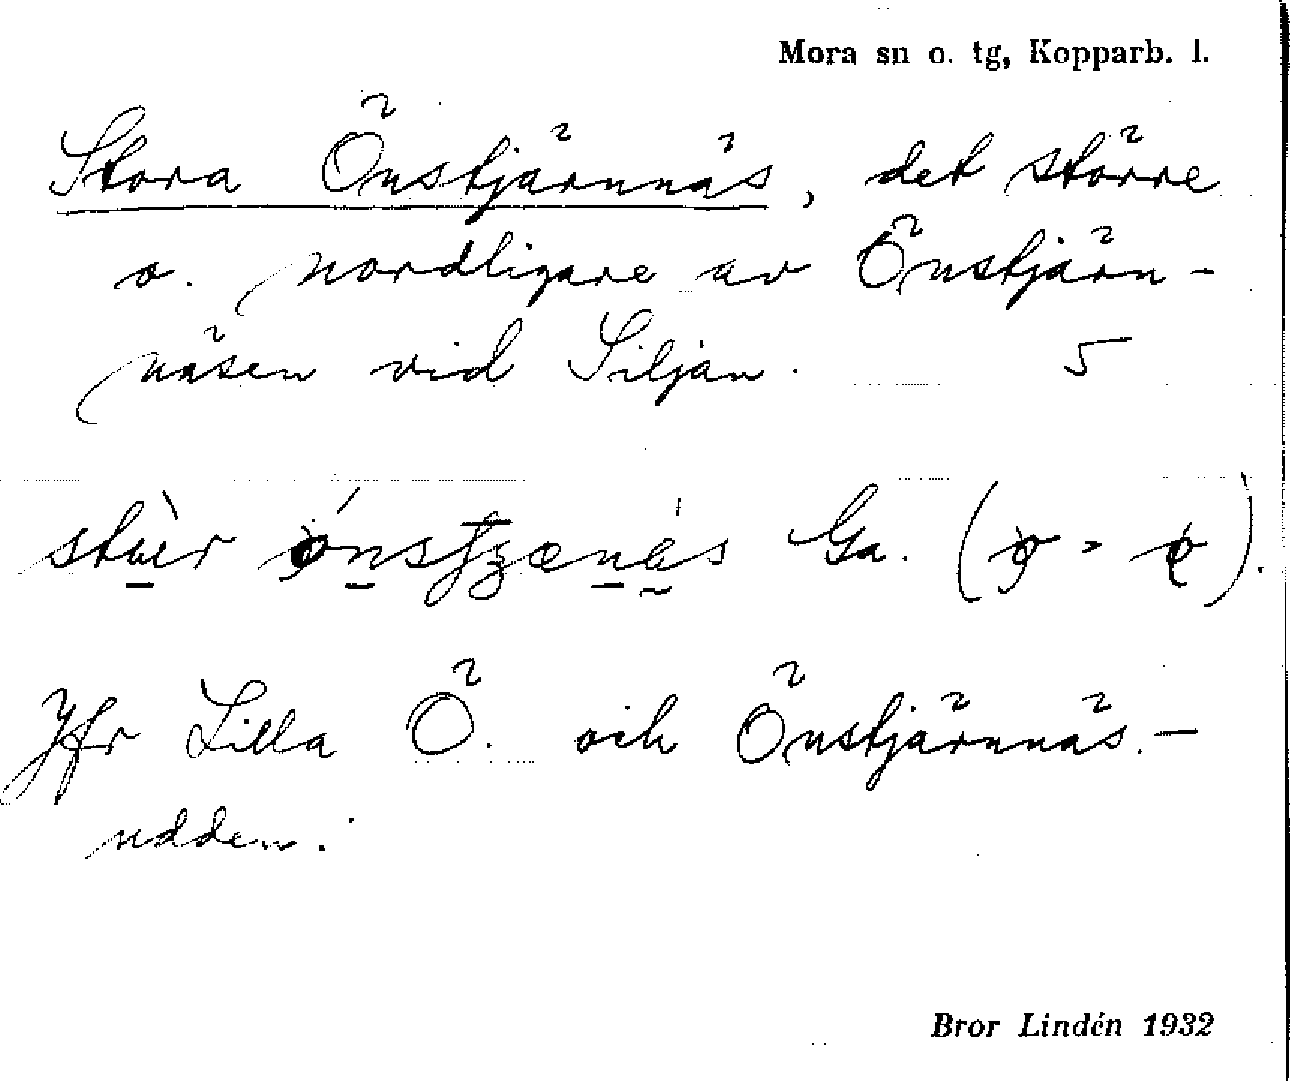 Mora sn o. tg, Kopparb. l.
Stora Önstjärnnäs, det större
o. nordligare av Önstjärn-
näsen vid Siljan. 5
Ga.
Jfr Lilla Ö. och Önstjärnnäs.-
udden.
Bror Lindén 1932